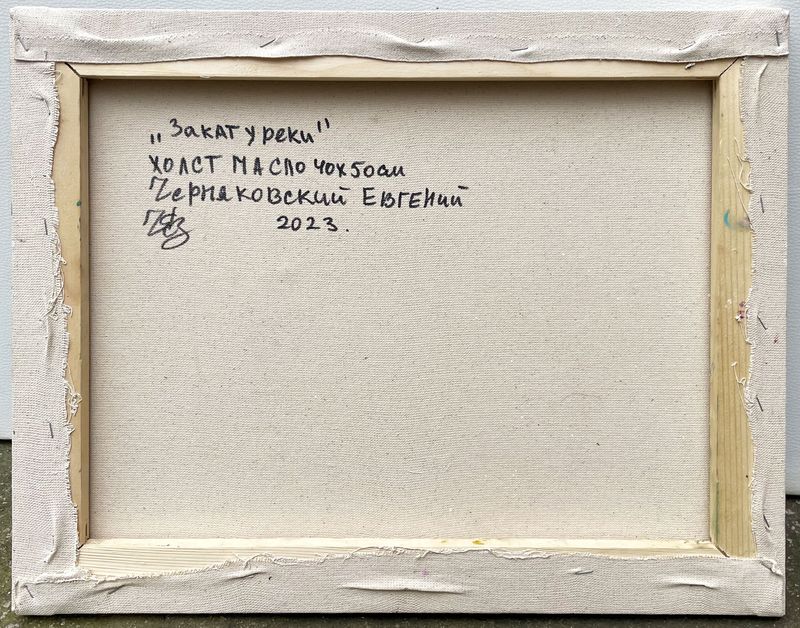 „Закат у реки"
ХОЛСТ МАСЛО 40х50см
Черняковский Евгений
2023.